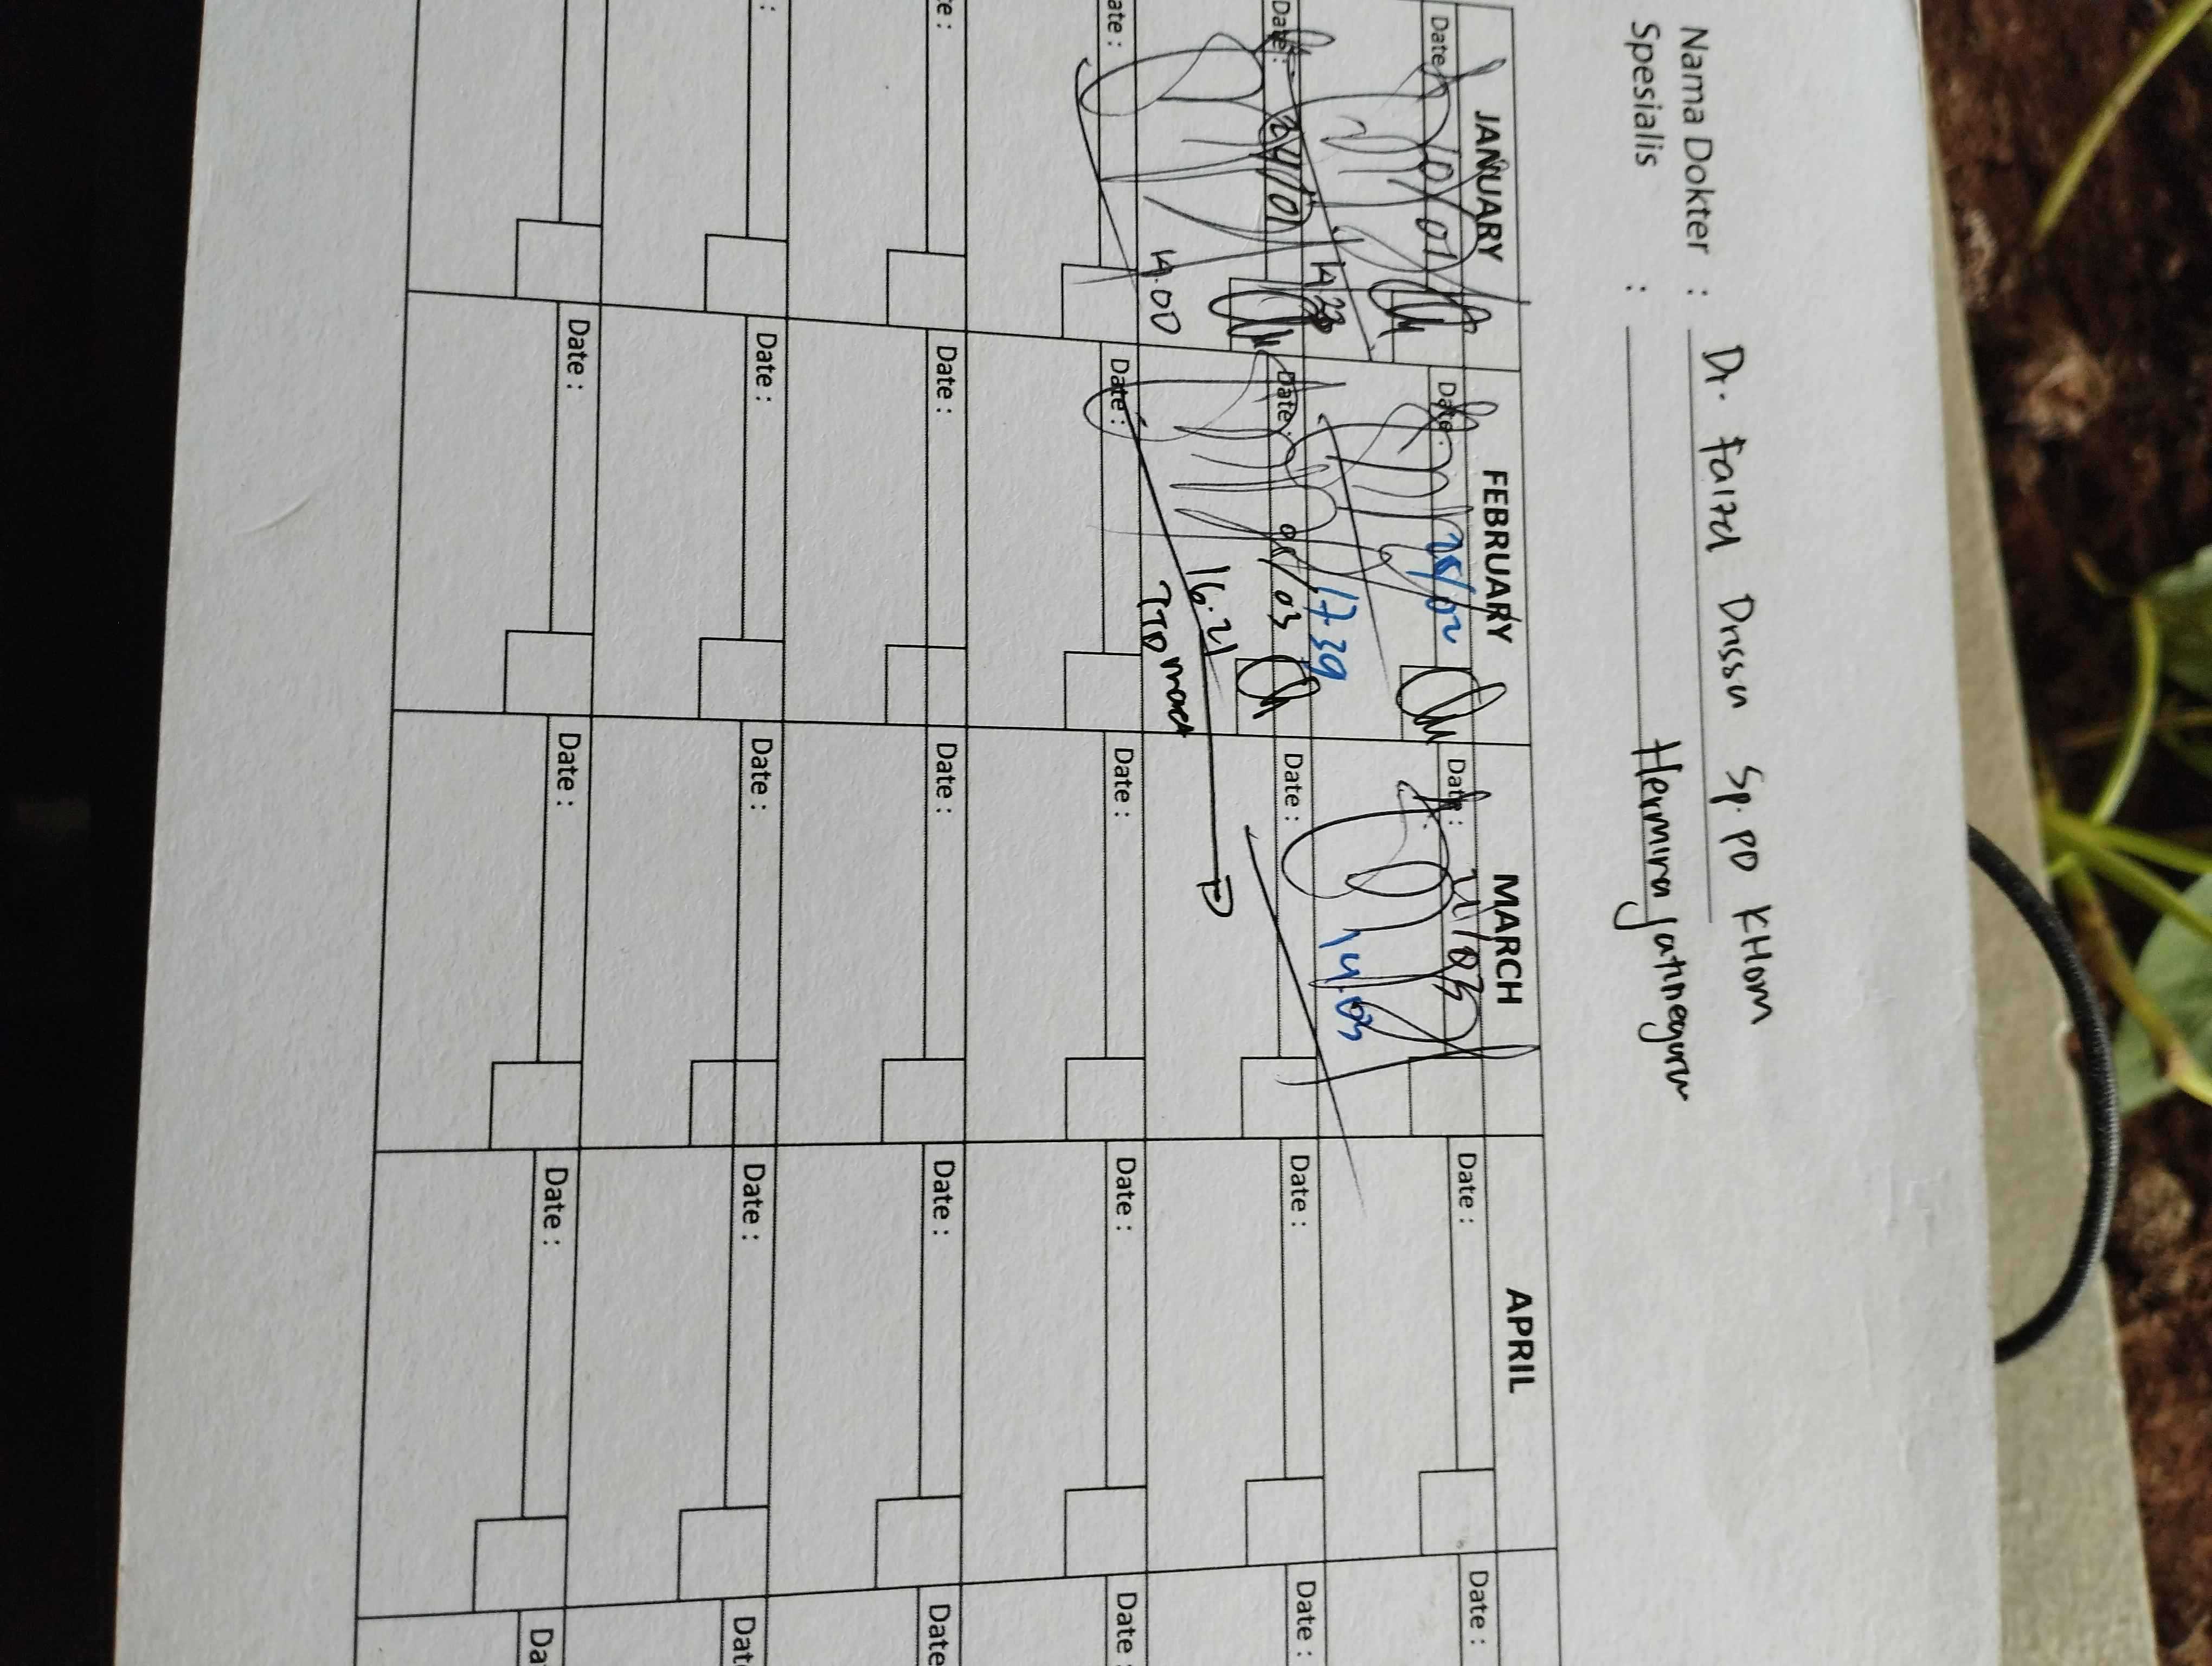 Nama Dokter : Dr. Faiza Drissu Sp.PD KHOM
Spesialis : Hermina Jatinegara
JANUARY FEBRUARY MARCH APRIL
Date : 10/01 Date : 25/02 Date : 21/03 Date : Date :
14.33 17.39 14.03
Date : 24/01 Date : 05/03 Date : Date : Date :
14.00 16.21
TTD maret
ate : Date : Date : Date : Date :
te : Date : Date : Date : Date
: Date : Date : Date : Dat
Date : Date : Date : Da